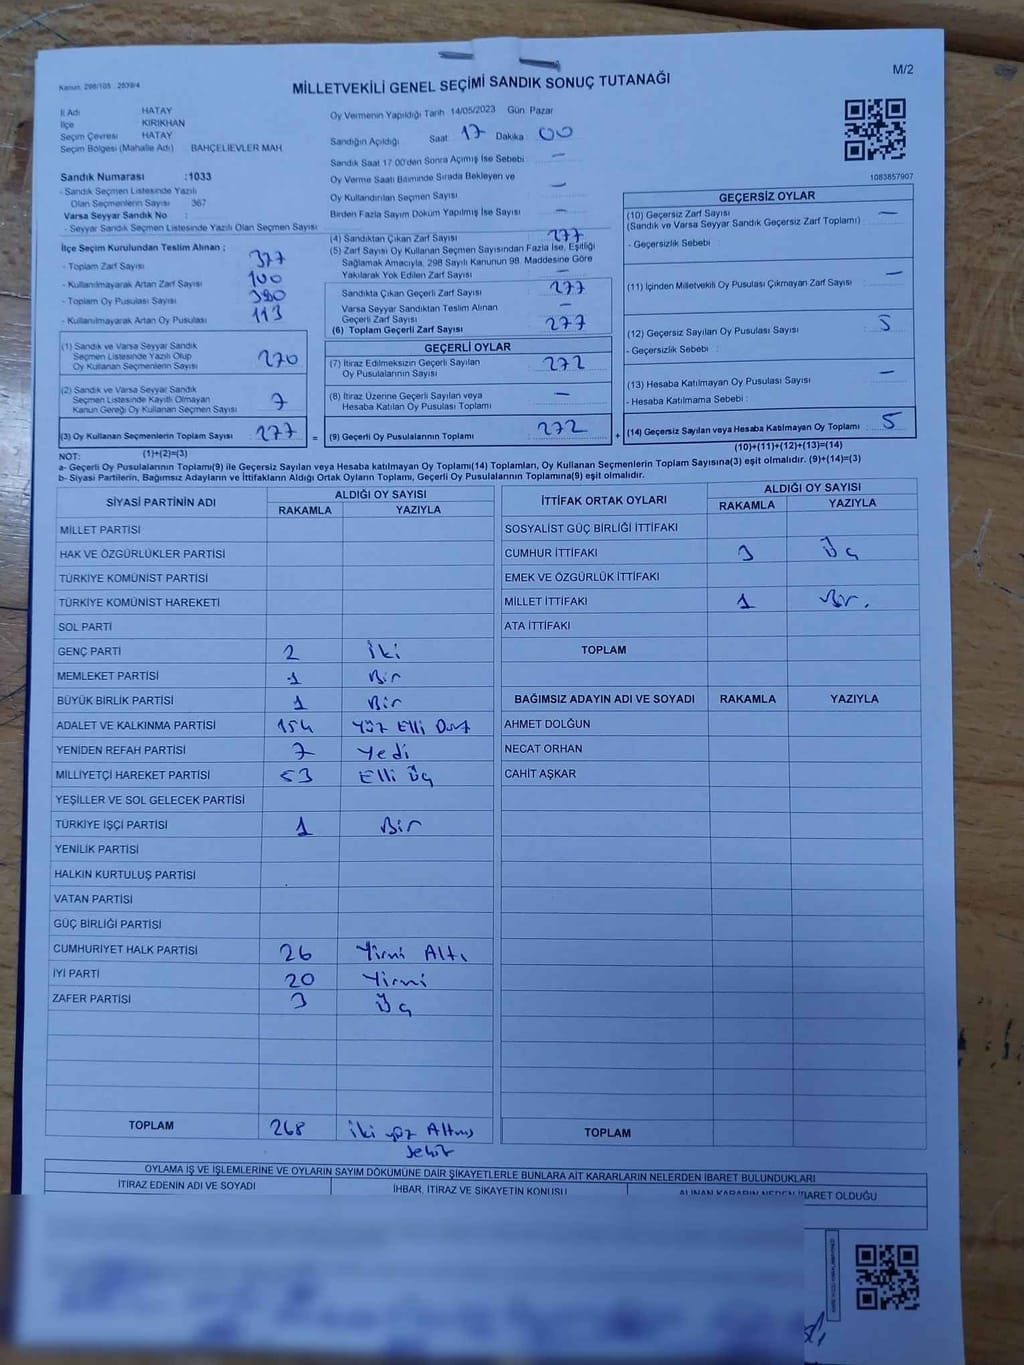 Kanun: 298/105 2839/4
M/2
MİLLETVEKİLİ GENEL SEÇİMİ SANDIK SONUÇ TUTANAĞI
İl Adı HATAY
İlçe KIRIKHAN
Seçim Çevresi HATAY
Seçim Bölgesi (Mahalle Adı) BAHÇELİEVLER MAH
Sandık Numarası :1033
- Sandık Seçmen Listesinde Yazılı
Olan Seçmenlerin Sayısı 367
Varsa Seyyar Sandık No :
- Seyyar Sandık Seçmen Listesinde Yazılı Olan Seçmen Sayısı
Oy Vermenin Yapıldığı Tarih 14/05/2023 Gün Pazar
Sandığın Açıldığı Saat 17 Dakika 00
Sandık Saat 17:00'den Sonra Açımış İse Sebebi —
Oy Verme Saati Bitiminde Sırada Bekleyen ve
Oy Kullandırılan Seçmen Sayısı —
Birden Fazla Sayım Döküm Yapılmış İse Sayısı —
1083857907
İlçe Seçim Kurulundan Teslim Alınan ;
- Toplam Zarf Sayısı 377
- Kullanılmayarak Artan Zarf Sayısı 100
- Toplam Oy Pusulası Sayısı 390
- Kullanılmayarak Artan Oy Pusulası 113
(1) Sandık ve Varsa Seyyar Sandık
Seçmen Listesinde Yazılı Olup
Oy Kullanan Seçmen Sayısı 270
(2) Sandık ve Varsa Seyyar Sandık
Seçmen Listesinde Kayıtlı Olmayan
Kanun Gereği Oy Kullanan Seçmen Sayısı 7
(3) Oy Kullanan Seçmenlerin Toplam Sayısı 277 =
(4) Sandıktan Çıkan Zarf Sayısı 277
(5) Zarf Sayısı Oy Kullanan Seçmen Sayısından Fazla İse, Eşitliği
Sağlamak Amacıyla, 298 Sayılı Kanunun 98. Maddesine Göre
Yakılarak Yok Edilen Zarf Sayısı —
Sandıkta Çıkan Geçerli Zarf Sayısı 277
Varsa Seyyar Sandıktan Teslim Alınan
Geçerli Zarf Sayısı —
(6) Toplam Geçerli Zarf Sayısı 277
GEÇERLİ OYLAR
(7) İtiraz Edilmeksizin Geçerli Sayılan
Oy Pusulalarının Sayısı 272
(8) İtiraz Üzerine Geçerli Sayılan veya
Hesaba Katılan Oy Pusulası Toplamı —
(9) Geçerli Oy Pusulalarının Toplamı 272 +
GEÇERSİZ OYLAR
(10) Geçersiz Zarf Sayısı —
(Sandık ve Varsa Seyyar Sandık Geçersiz Zarf Toplamı)
- Geçersizlik Sebebi :
(11) İçinden Milletvekili Oy Pusulası Çıkmayan Zarf Sayısı —
(12) Geçersiz Sayılan Oy Pusulası Sayısı 5
- Geçersizlik Sebebi :
(13) Hesaba Katılmayan Oy Pusulası Sayısı —
- Hesaba Katılmama Sebebi :
(14) Geçersiz Sayılan veya Hesaba Katılmayan Oy Toplamı : 5
NOT: (1)+(2)=(3) (10)+(11)+(12)+(13)=(14)
a- Geçerli Oy Pusulalarının Toplamı(9) ile Geçersiz Sayılan veya Hesaba katılmayan Oy Toplamı(14) Toplamları, Oy Kullanan Seçmenlerin Toplam Sayısına(3) eşit olmalıdır. (9)+(14)=(3)
b- Siyasi Partilerin, Bağımsız Adayların ve İttifakların Aldığı Ortak Oyların Toplamı, Geçerli Oy Pusulalarının Toplamına(9) eşit olmalıdır.
SİYASİ PARTİNİN ADI ALDIĞI OY SAYISI
RAKAMLA YAZIYLA
MİLLET PARTİSİ
HAK VE ÖZGÜRLÜKLER PARTİSİ
TÜRKİYE KOMÜNİST PARTİSİ
TÜRKİYE KOMÜNİST HAREKETİ
SOL PARTİ
GENÇ PARTİ 2 İki
MEMLEKET PARTİSİ 1 Bir
BÜYÜK BİRLİK PARTİSİ 1 Bir
ADALET VE KALKINMA PARTİSİ 154 Yüz Elli Dört
YENİDEN REFAH PARTİSİ 7 Yedi
MİLLİYETÇİ HAREKET PARTİSİ 53 Elli Üç
YEŞİLLER VE SOL GELECEK PARTİSİ
TÜRKİYE İŞÇİ PARTİSİ 1 Bir
YENİLİK PARTİSİ
HALKIN KURTULUŞ PARTİSİ
VATAN PARTİSİ
GÜÇ BİRLİĞİ PARTİSİ
CUMHURİYET HALK PARTİSİ 26 Yirmi Altı
İYİ PARTİ 20 Yirmi
ZAFER PARTİSİ 3 Üç
TOPLAM 268 İki yüz Altmış
Sekiz
İTTİFAK ORTAK OYLARI ALDIĞI OY SAYISI
RAKAMLA YAZIYLA
SOSYALİST GÜÇ BİRLİĞİ İTTİFAKI
CUMHUR İTTİFAKI 3 Üç
EMEK VE ÖZGÜRLÜK İTTİFAKI
MİLLET İTTİFAKI 1 Bir.
ATA İTTİFAKI
TOPLAM
BAĞIMSIZ ADAYIN ADI VE SOYADI RAKAMLA YAZIYLA
AHMET DOLĞUN
NECAT ORHAN
CAHİT AŞKAR
TOPLAM
OYLAMA İŞ VE İŞLEMLERİNE VE OYLARIN SAYIM DÖKÜMÜNE DAİR ŞİKAYETLERLE BUNLARA AİT KARARLARIN NELERDEN İBARET BULUNDUKLARI
İTİRAZ EDENİN ADI VE SOYADI İHBAR, İTİRAZ VE ŞİKAYETİN KONUSU ALINAN KARARIN NEDEN İBARET OLDUĞU